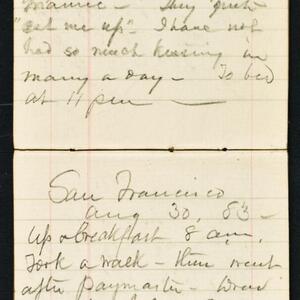 mamie - They just
"eat me up". I have not
had so much kissing in
many a day - To bed
at 11 pm —
San Francisco
Aug 30, 83 -
Up & breakfast 8 am,
Took a walk - then went
after paymaster -